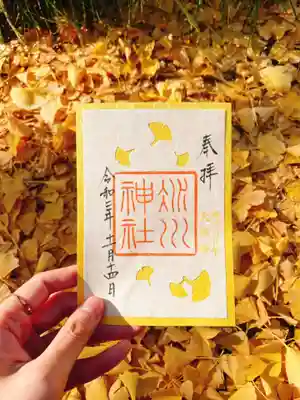 奉拝
氷川
神社
令和三年十一月十四日